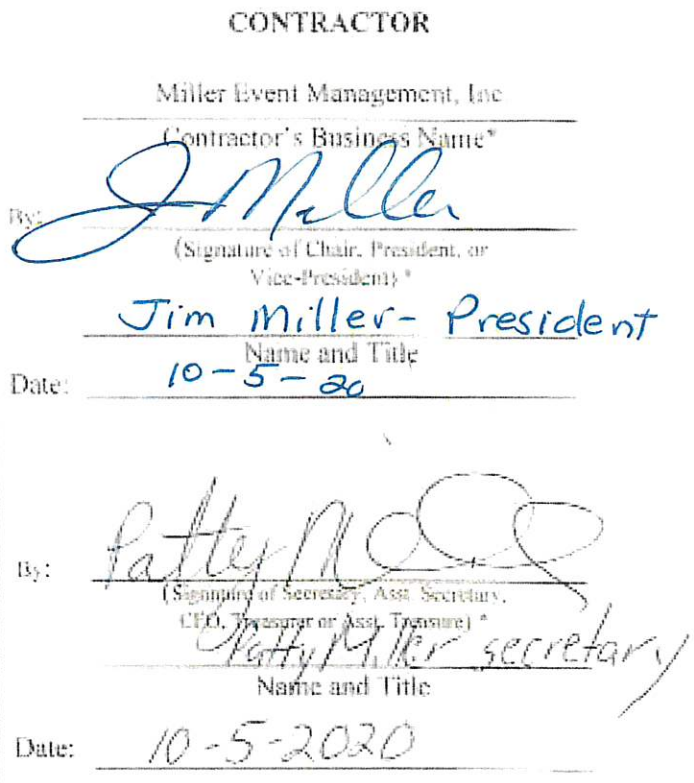 CONTRACTOR
Miller Event Management, Inc
Contractor's Business Name*
By: J Miller
(Signature of Chair, President, or
Vice-President) *
Jim Miller - President
Name and Title
Date: 10-5-20
By: Patty M
(Signature of Secretary, Asst. Secretary,
CFO, Treasurer or Asst. Treasure) *
Patty Miller secretary
Name and Title
Date: 10-5-2020